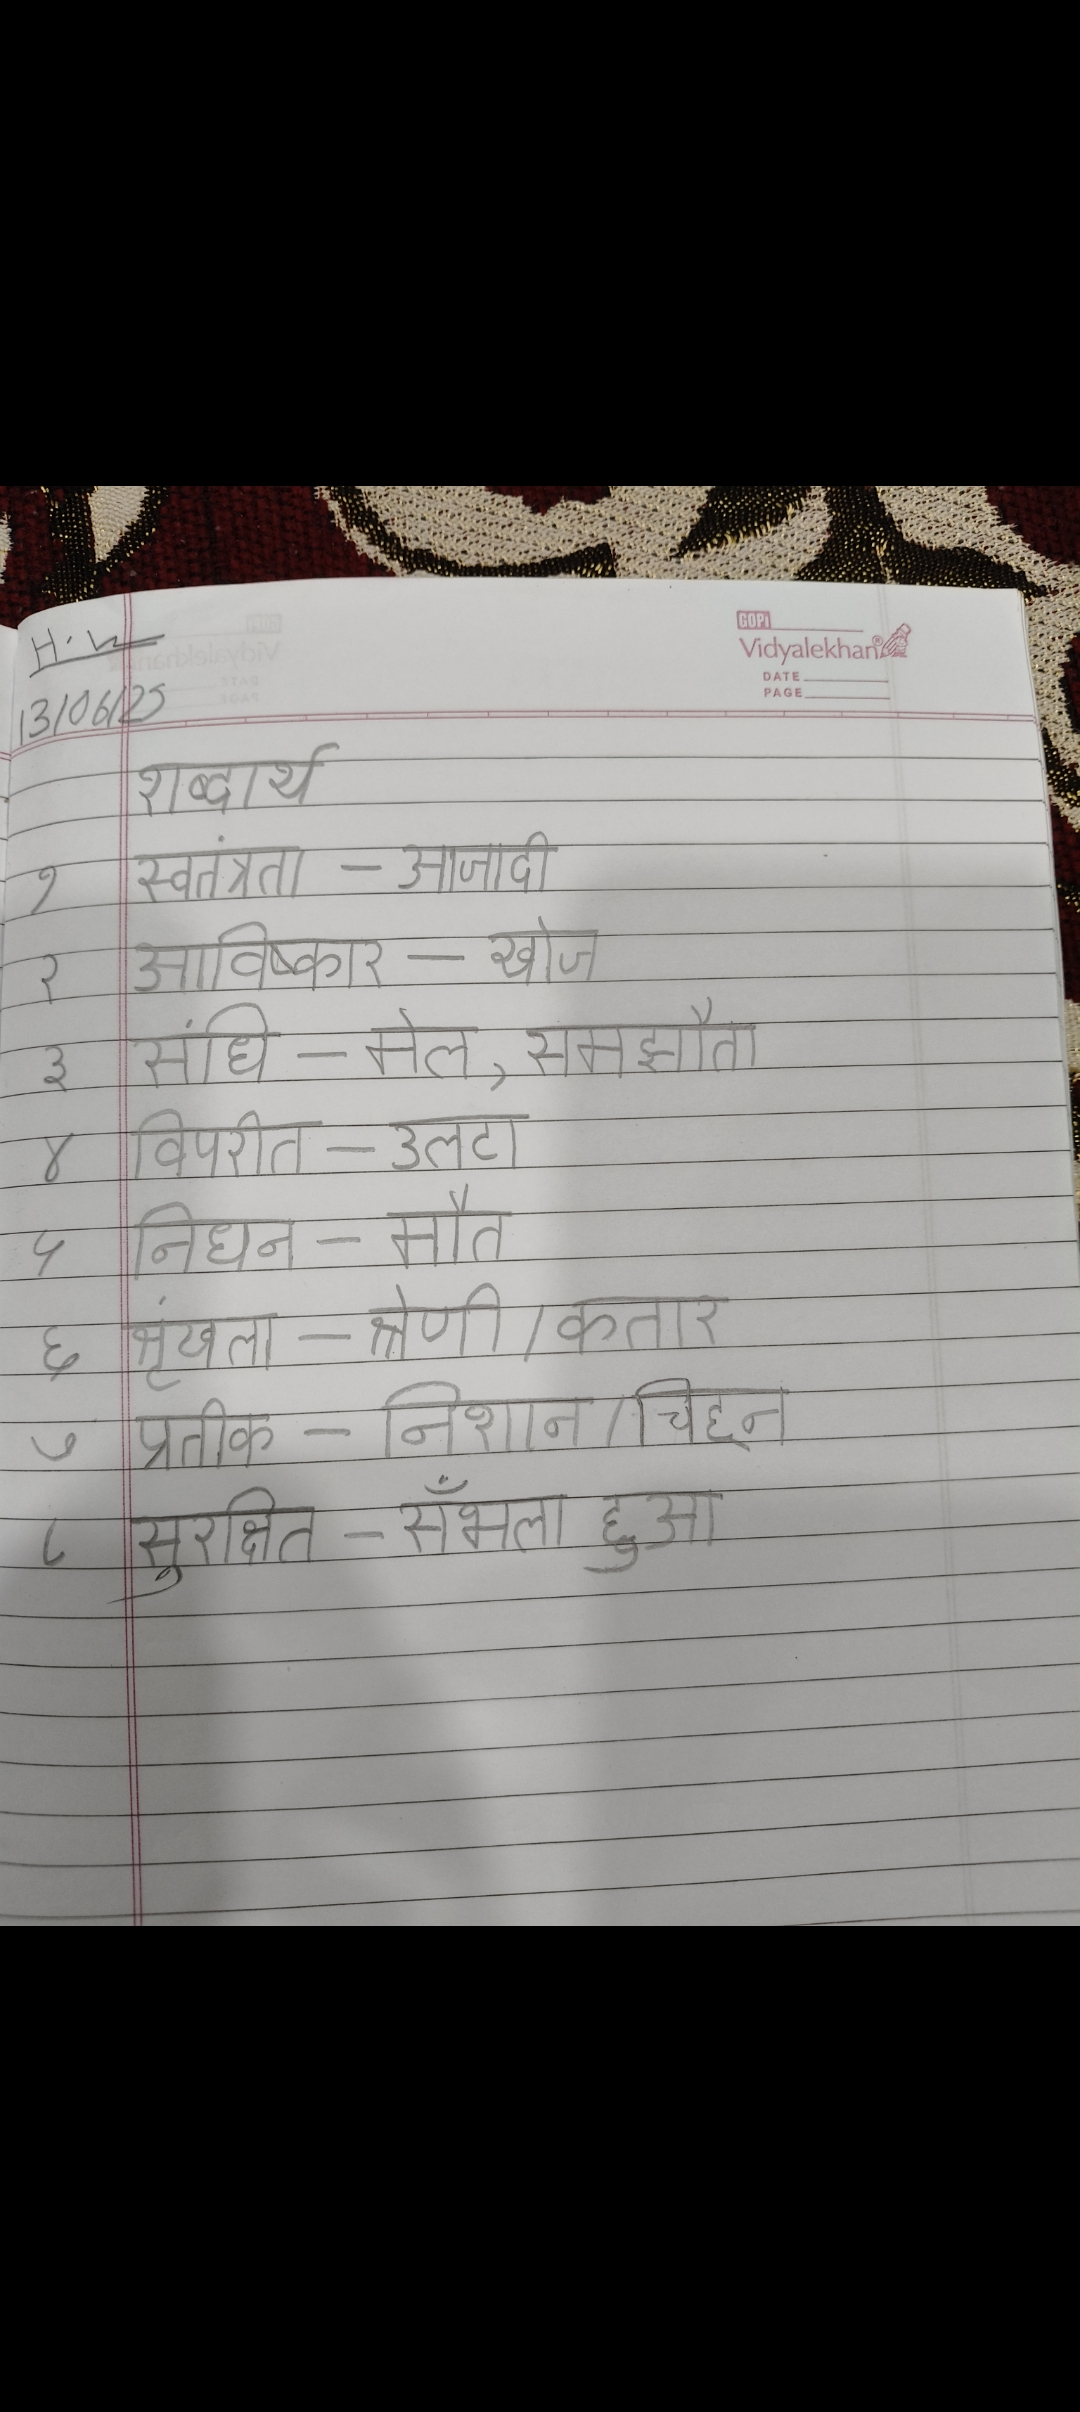 H.W
GOPi
Vidyalekhan®
DATE
PAGE
13/06/25
शब्दार्थ
१ स्वतंत्रता – आजादी
२ आविष्कार – खोज
३ संधि – मेल, समझौता
४ विपरीत – उलटा
५ निधन – मौत
६ शृंखला – श्रेणी / कतार
७ प्रतीक – निशान / चिह्न
८ सुरक्षित – सँभला हुआ